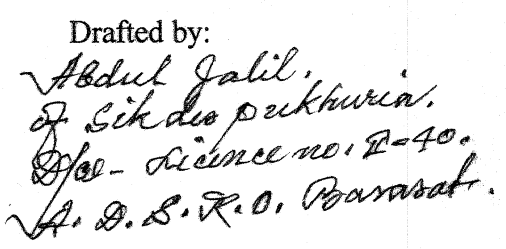 Drafted by:
Abdul Jalil.
of Sikdes pukhuria.
D/W- Licence no. I-40.
A. D. S. R. O. Barasat.